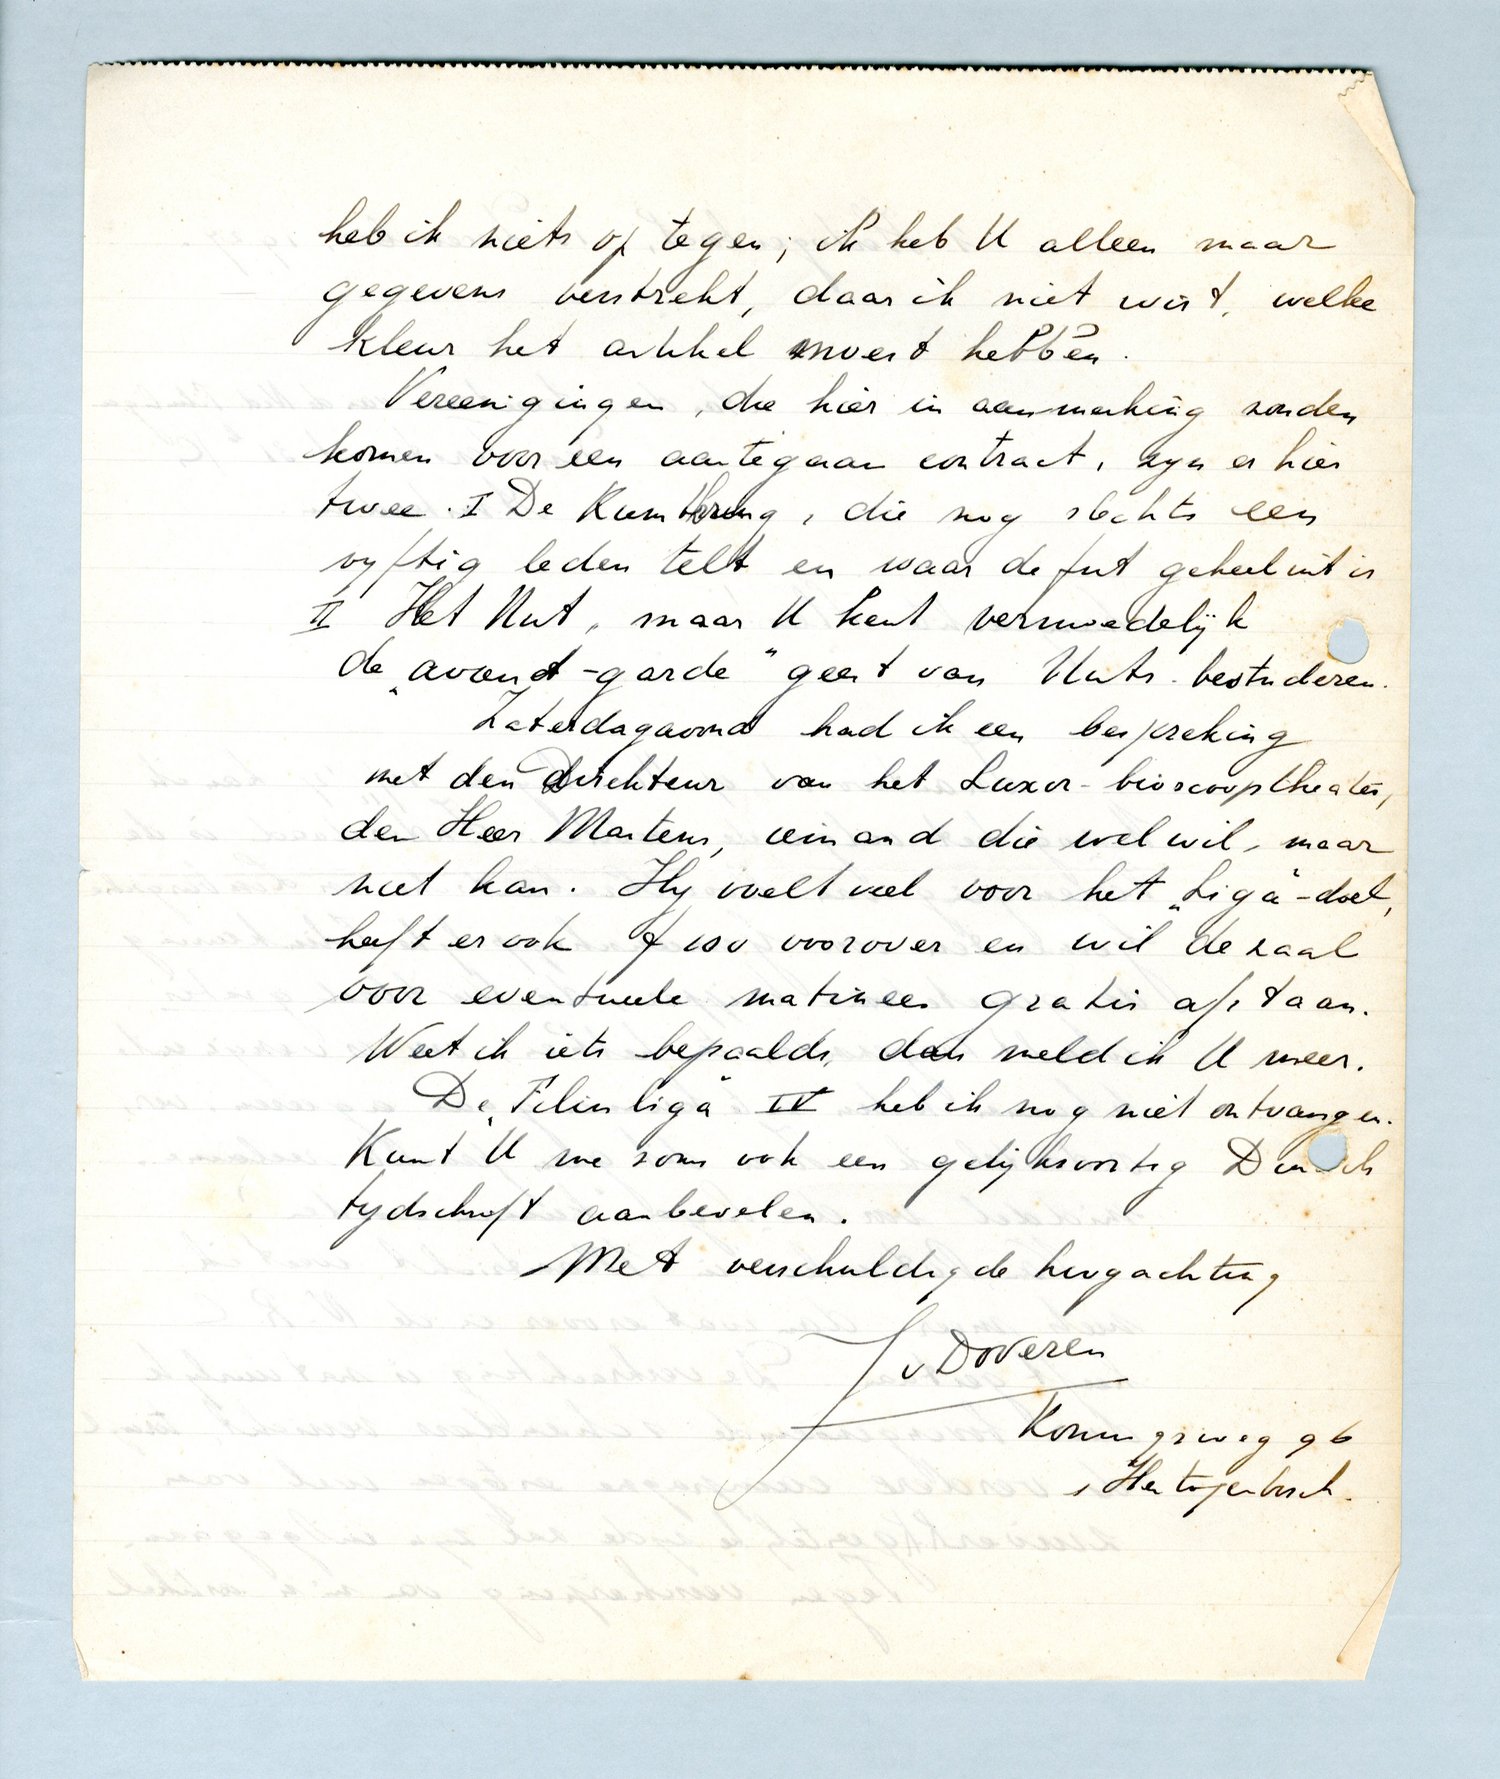 heb ik niets op tegen; ik heb U alleen maar
gegevens verstrekt, daar ik niet wist, welke
kleur het artikel moest hebben.
Vereenigingen, die hier in aanmerking zouden
komen voor een aantegaan contract, zyn er hier
twee. I De Kunstkring, die nog slechts een
vyftig leden telt en waar de fut geheel uit is
II Het Nut, maar U kent vermoedelijk
de „avant-garde" geest van Nuts-bestuderen.
Zaterdagavond had ik een bespreking
met den Direkteur van het Luxor-bioscooptheater,
den Heer Martens, iemand die wel wil, maar
niet kan. Hy voelt veel voor het „Liga"-doel,
heeft er ook f 100 voorover en wil de zaal
voor eventueele matinees gratis afstaan.
Weet ik iets bepaalds, dan meld ik U meer.
De „Filmliga" IV heb ik nog niet ontvangen.
Kunt U me soms ook een gelijksoortig Duitsch
tydschrift aanbevelen.
Met verschuldigde hoogachting
J v Doveren
Koningsweg 96
s Hertogenbosch.